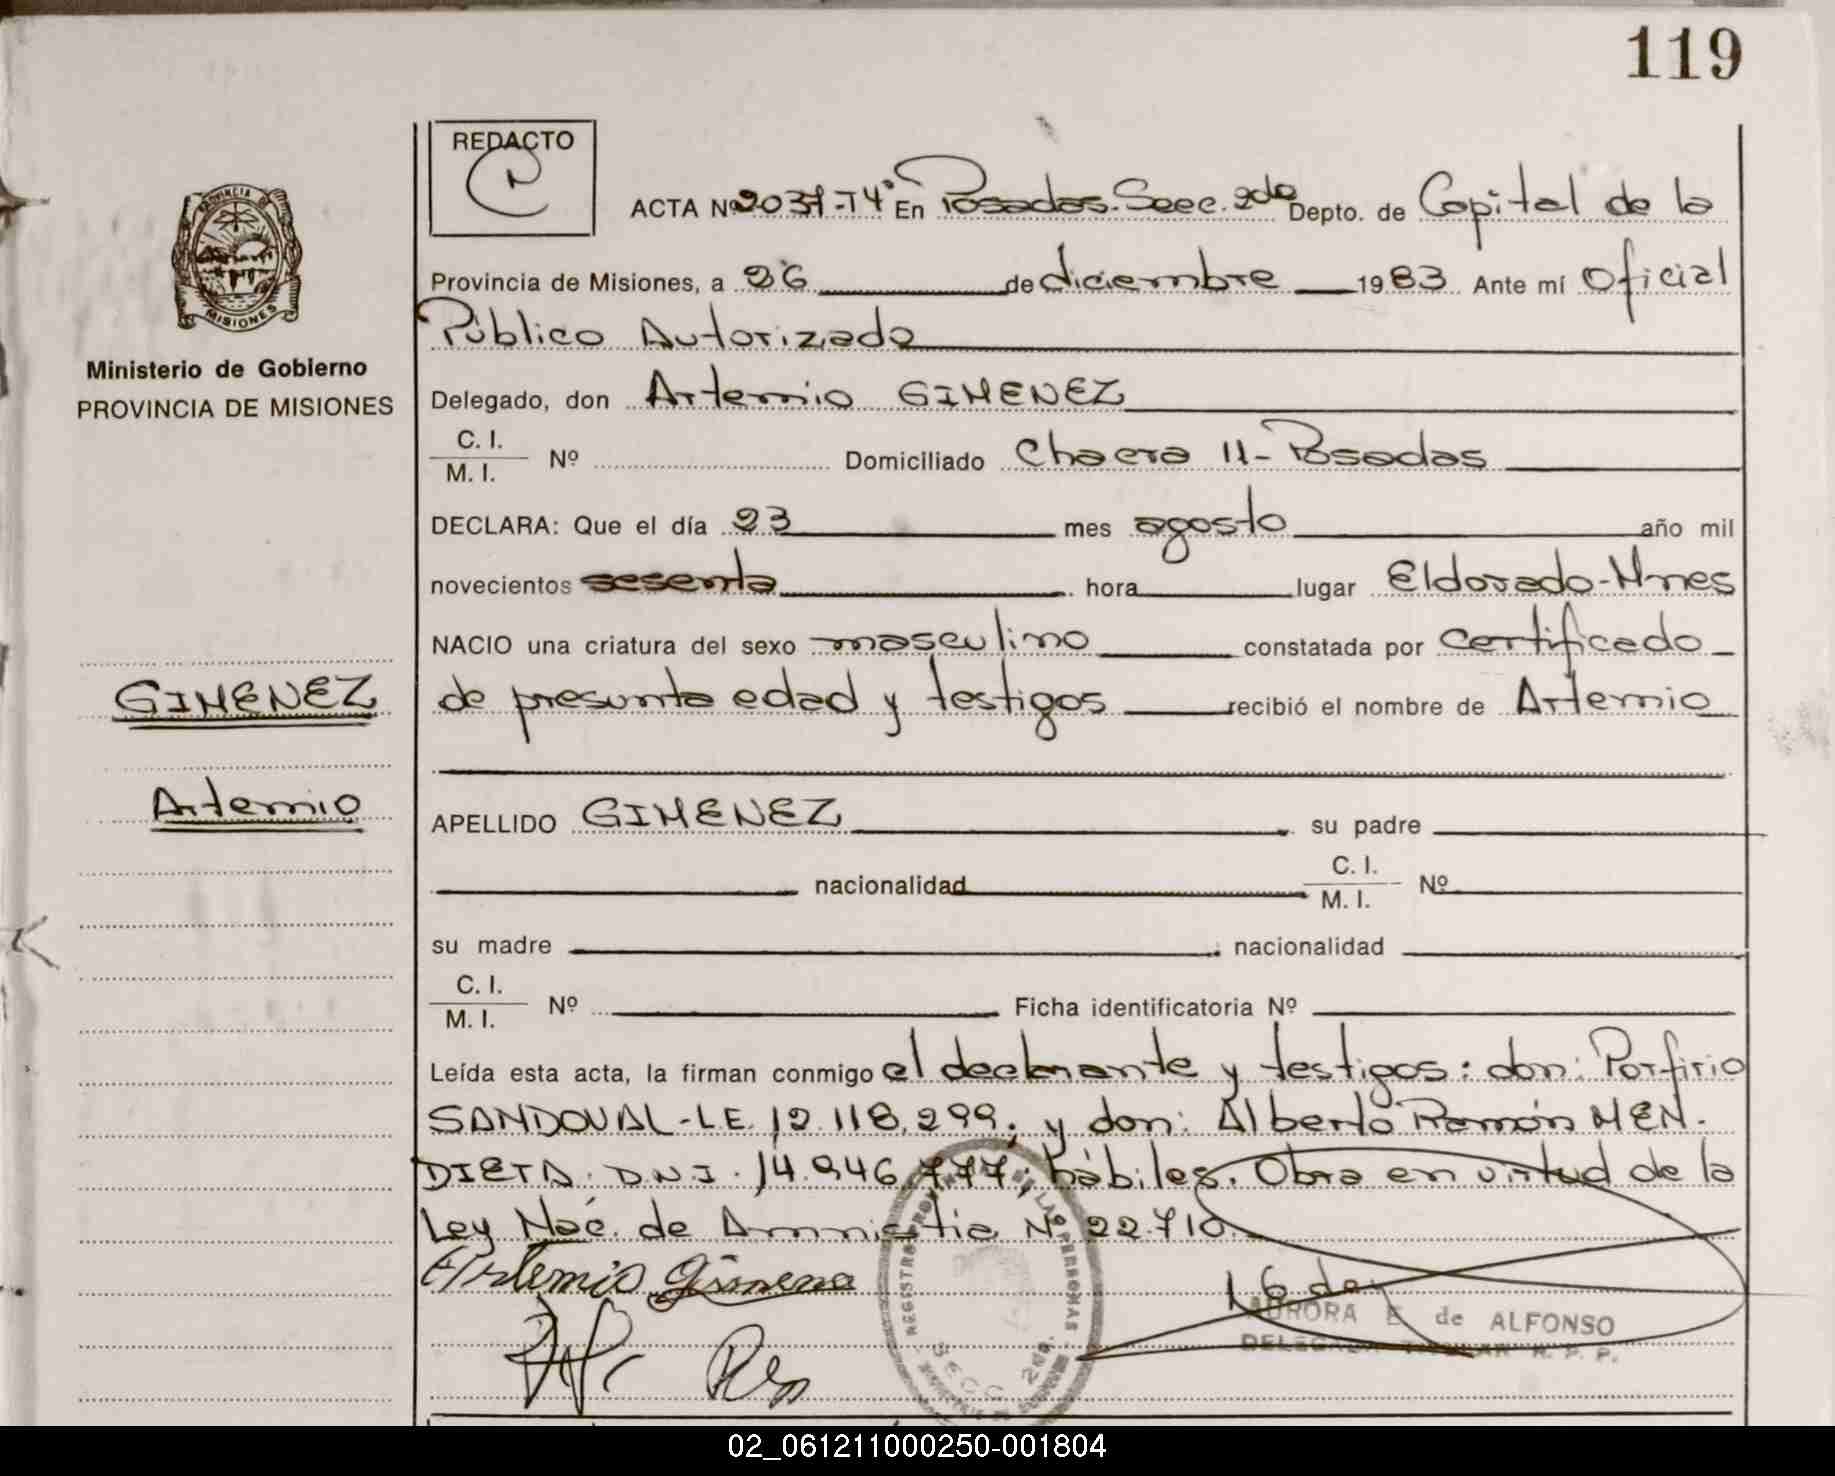 119
REDACTO
ACTA Nº 2037-T4º En Posadas. Secc. 2da Depto. de Capital de la
PROVINCIA DE
MISIONES
Provincia de Misiones, a 26 de diciembre 1983 Ante mí Oficial
Público Autorizado
Ministerio de Gobierno
PROVINCIA DE MISIONES
Delegado, don Artemio GIMENEZ
C. I.
M. I. Nº Domiciliado Chacra 11-Posadas
DECLARA: Que el día 23 mes agosto año mil
novecientos sesenta hora lugar Eldorado-Mnes
NACIO una criatura del sexo masculino constatada por certificado
GIMENEZ
de presunta edad y testigos recibió el nombre de Artemio
Artemio
APELLIDO GIMENEZ su padre
nacionalidad C. I.
M. I. Nº
su madre nacionalidad
C. I.
M. I. Nº Ficha identificatoria Nº
Leída esta acta, la firman conmigo el declarante y testigos: don: Porfirio
SANDOVAL-L.E. 12.118.299; y don: Alberto Ramón MEN-
DIETA. D.N.I. 14.946.777; hábiles. Obra en virtud de la
Ley Nac. de Amnistia Nº 22.710.
Artemio Gimenez
REGISTRO PROVINCIAL DE LAS PERSONAS
SECC. 2da.
AURORA E. de ALFONSO
DELEGADA TITULAR R. P. P.
02_061211000250-001804